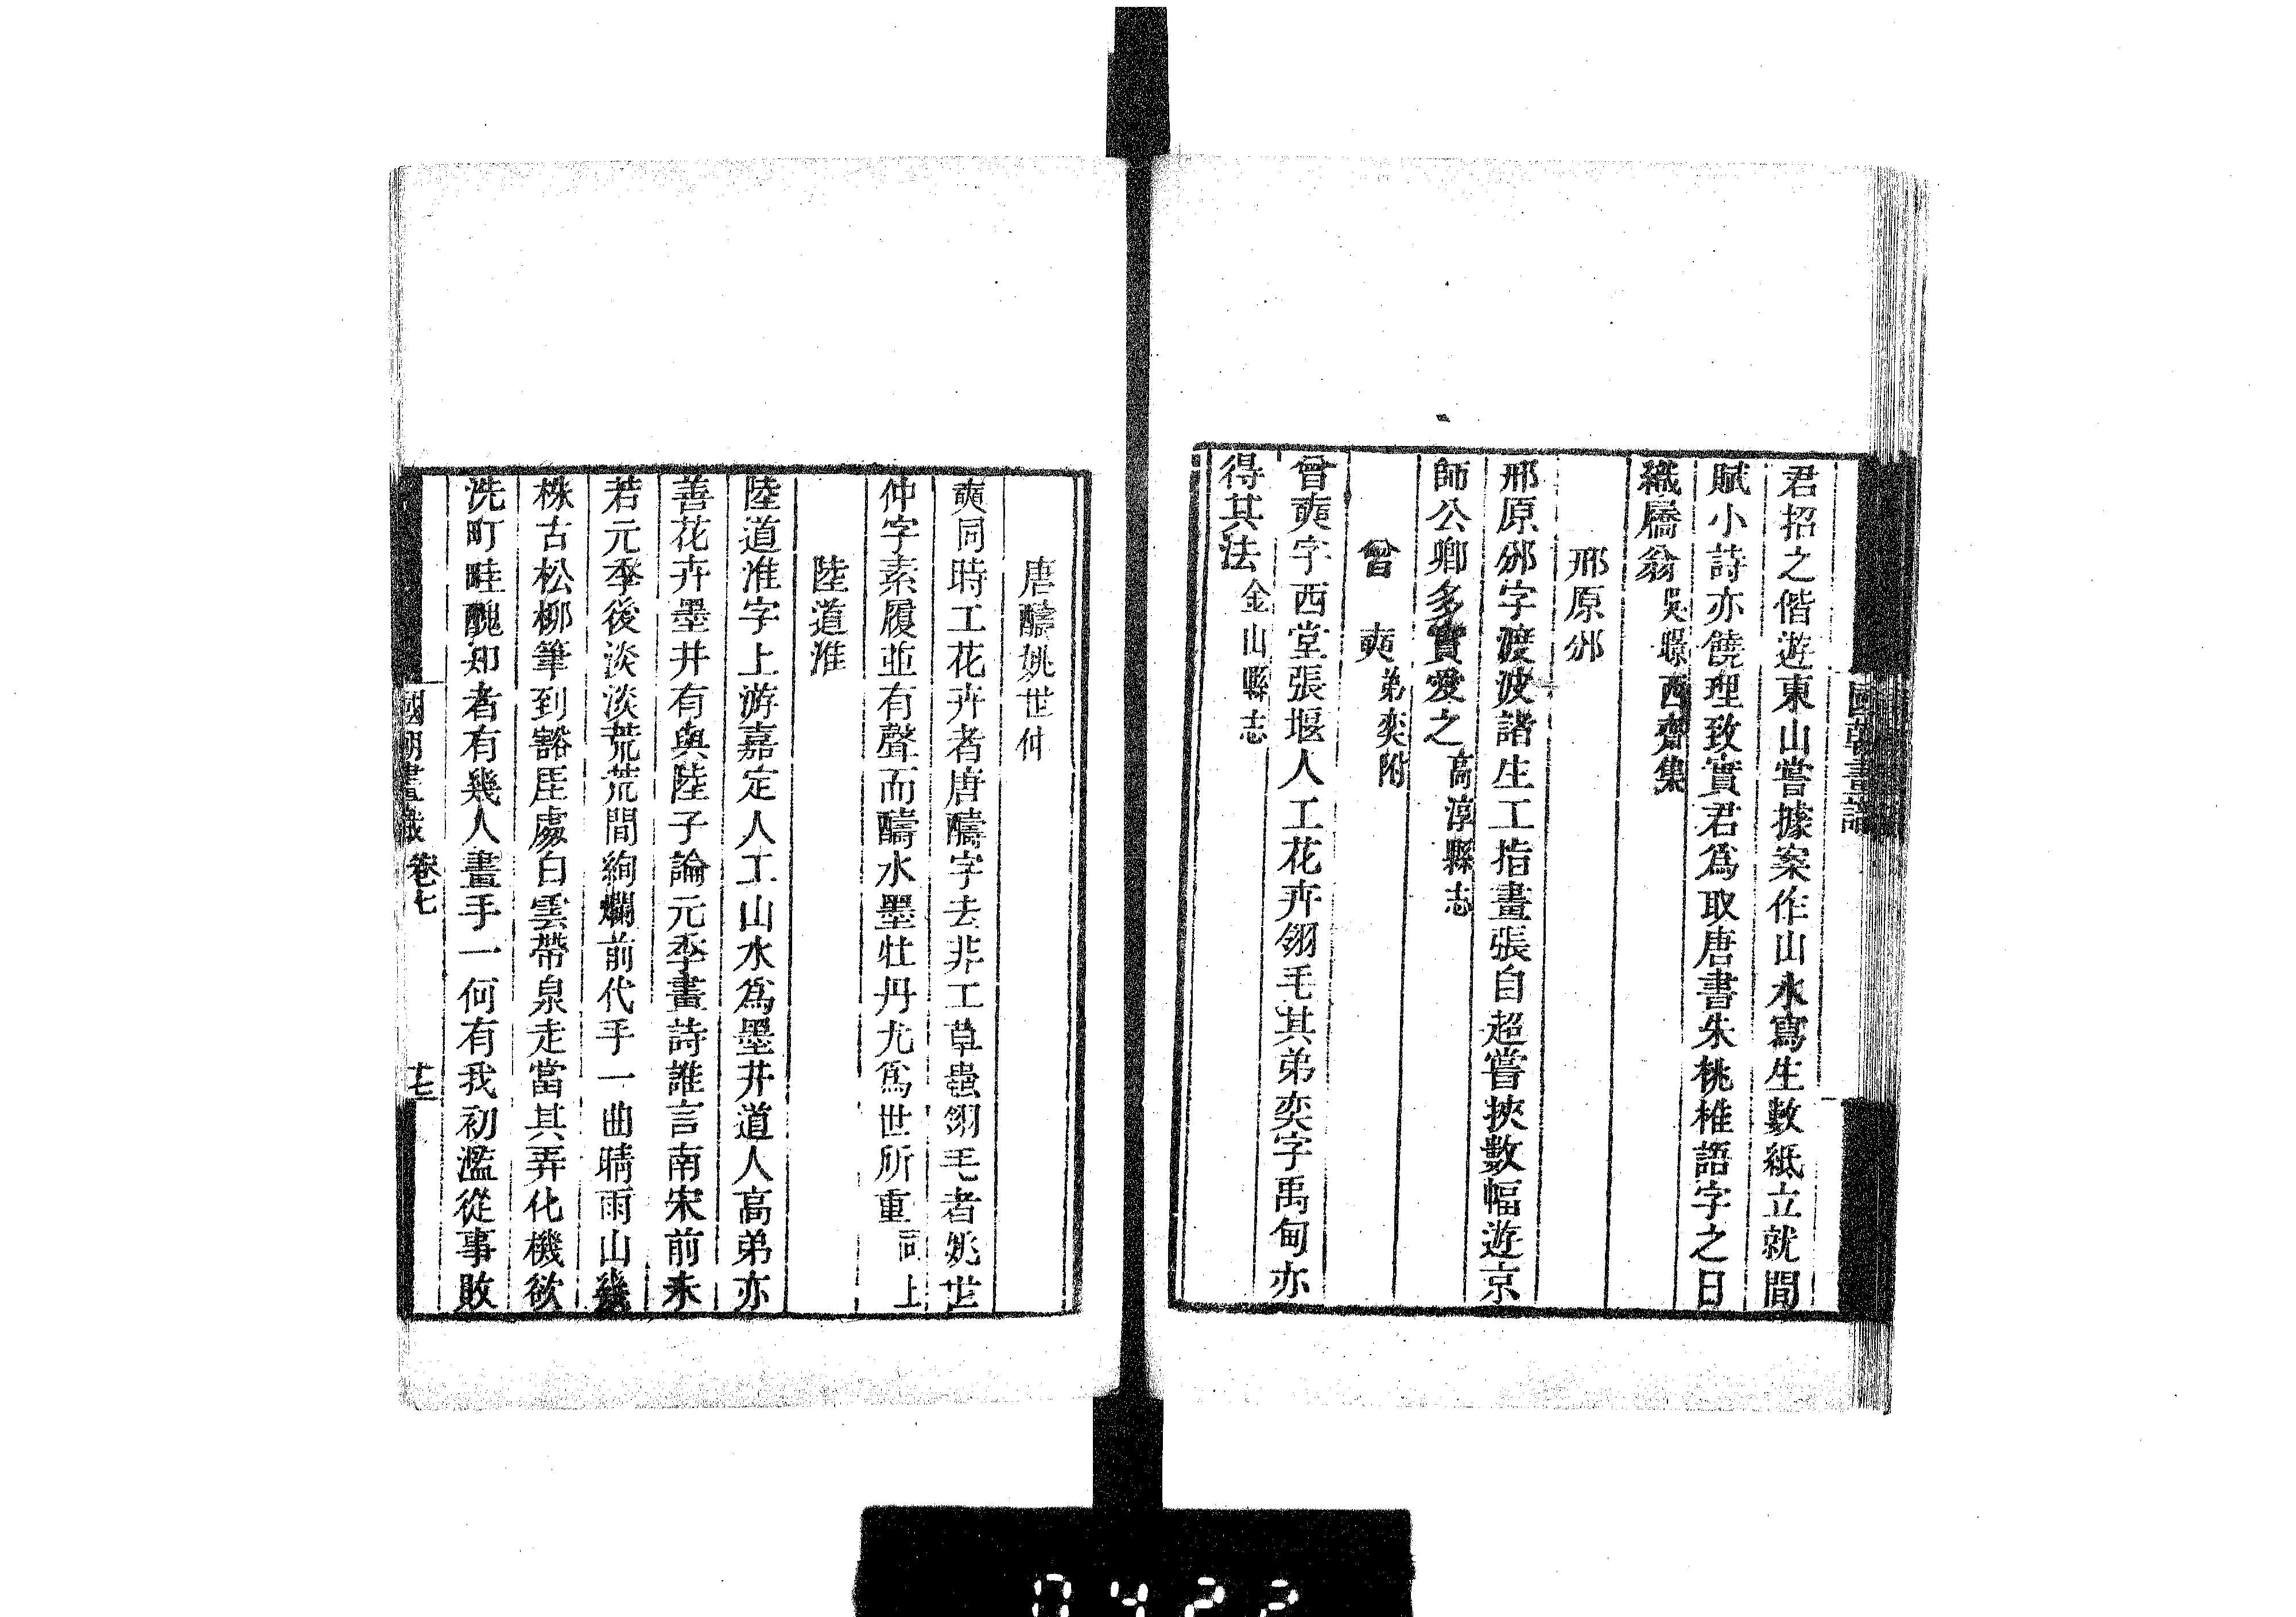 君招之偕遊東山嘗據案作山水寫生數紙立就間
賦小詩亦饒理致實君爲取唐書朱桃椎語字之曰
織屩翁吳暻西齋集
邢原邠
邢原邠字渡波諸生工指畫張自超嘗挾數幅遊京
師公卿多寶愛之高淳縣志
曾奭弟奕附
曾奭字西堂張堰人工花卉翎毛其弟奕字禹甸亦
得其法金山縣志
唐醻姚世仲
奭同時工花卉者唐醻字去非工草蟲翎毛者姚世
仲字素履並有聲而醻水墨牡丹尤爲世所重同上
陸道淮
陸道淮字上游嘉定人工山水爲墨井道人高弟亦
善花卉墨井有與陸子論元季畫詩誰言南宋前未
若元季後淡淡荒荒間絢爛前代手一曲晴雨山幾
株古松柳筆到豁厓處白雲帶泉走當其弄化機欲
洗町畦醜知者有幾人畫手一何有我初濫從事敗
國朝畫識 卷七 廿七
國朝畫識
0422